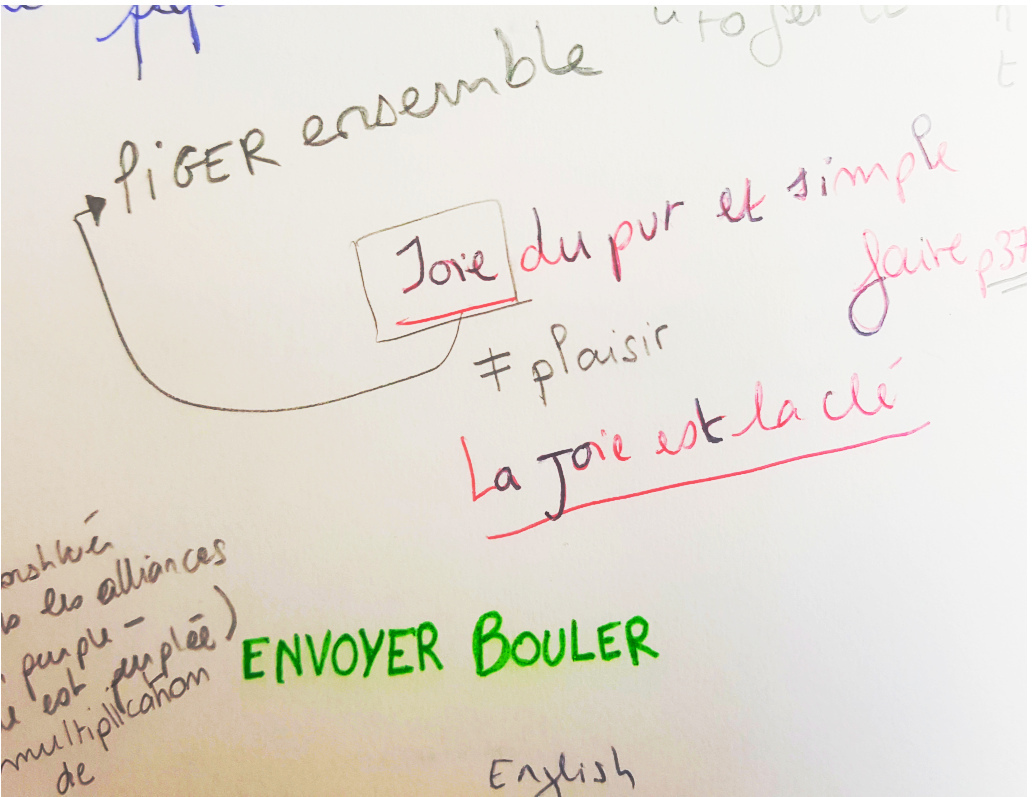 PIGER ensemble
Joie du pur et simple
faire p37
≠ plaisir
La Joie est la clé
les alliances
peuple -
est peuplée)
multiplication
de
ENVOYER BOULER
English